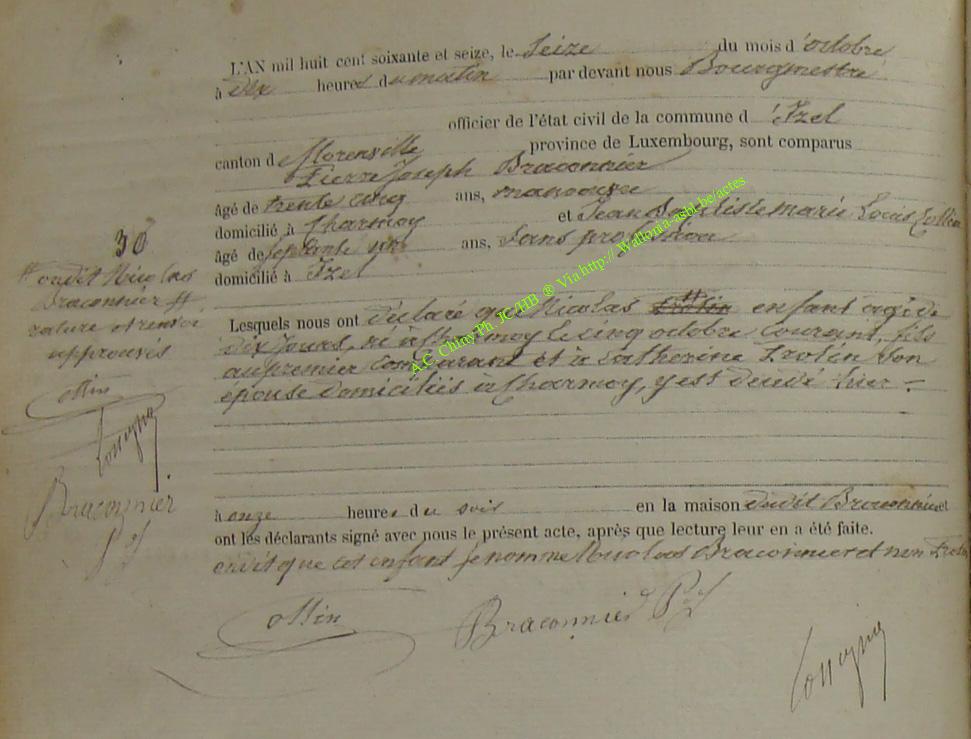 L'AN mil huit cent soixante et seize, le Seize du mois d'octobre
à dix heures du matin par devant nous Bourgmestre
officier de l'état civil de la commune d'Izel
canton de Florenville province de Luxembourg, sont comparus
Pierre Joseph Braconnier
âgé de trente cinq ans, manoeuvre
domicilié à Charmoy et Jean Baptiste marie Louis Collin
âgé de septante six ans, Sans profession
domicilié à Izel
Lesquels nous ont déclaré que Nicolas enfant agé de
dix jours, né à Charmoy le cinq octobre courant, fils
au premier comparant et à Catherine Son
épouse domiciliés à Charmoy, y est décédé hier
à onze heures du soir en la maison dudit Braconnier et
ont les déclarants signé avec nous le présent acte, après que lecture leur en a été faite.
que cet enfant se nomme Nicolas Braconnier et non
Braconnier PJ
30
Nicolas
Braconnier
rature et renvoi
approuvés
Braconnier
PJ
A.C. Chiny Ph. JC/HB ® Via http://Wallonia-asbl.be/actes